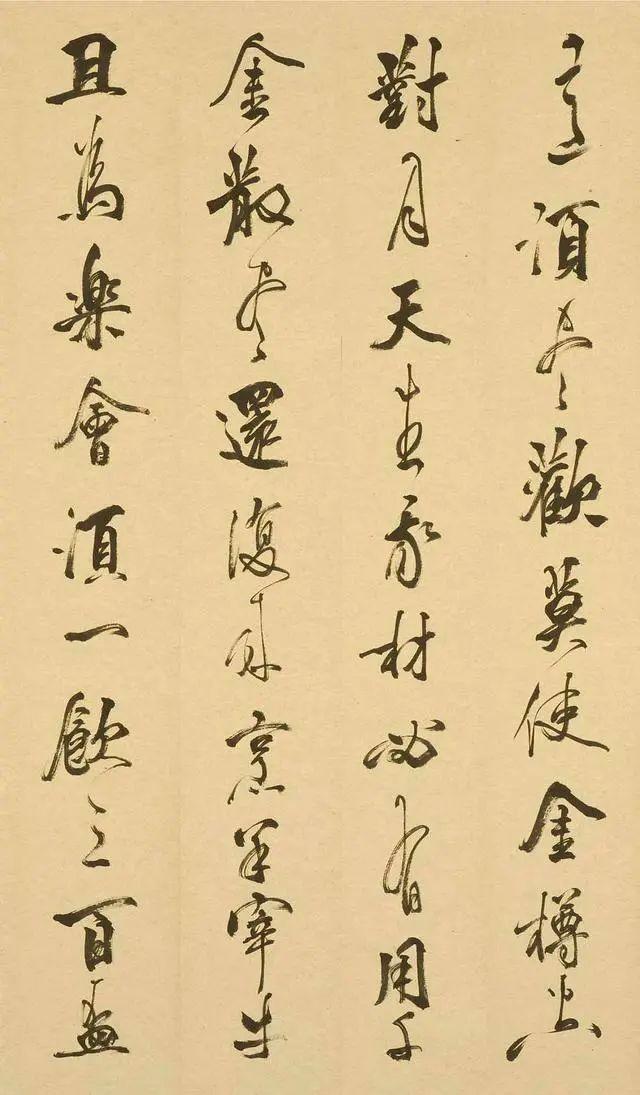 意須尽歡莫使金樽空
對月天生我材必有用千
金散尽還復来烹羊宰牛
且為楽會須一飲三百盃